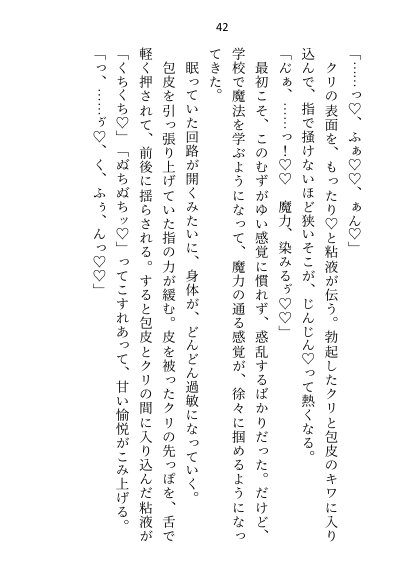 42
「……っ♡、ふぁ♡♡、ぁん♡」
　クリの表面を、もったり♡と粘液が伝う。勃起したクリと包皮のキワに入り
込んで、指で掻けないほど狭いそこが、じんじん♡って熱くなる。
「んぁ、……っ！♡♡　魔力、染みるぅ♡♡」
　最初こそ、このむずがゆい感覚に慣れず、惑乱するばかりだった。だけど、
学校で魔法を学ぶようになって、魔力の通る感覚が、徐々に掴めるようになっ
てきた。
　眠っていた回路が開くみたいに、身体が、どんどん過敏になっていく。
　包皮を引っ張り上げていた指の力が緩む。皮を被ったクリの先っぽを、舌で
軽く押されて、前後に揺らされる。すると包皮とクリの間に入り込んだ粘液が
「くちくち♡」「ぬぢぬぢッ♡」ってこすれあって、甘い愉悦がこみ上げる。
「っ、……ぅ゙♡、く、ふぅ、んっ♡♡」